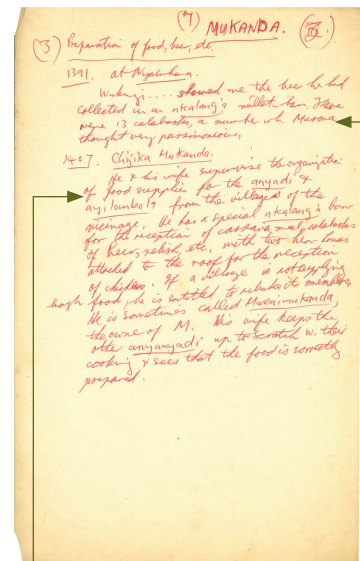 (7) MUKANDA. III
(3) Preparation of food, beer, etc.
1391. at Nyaluhana.
Wukengi .... showed me the beer he had
collected in an nkalang'a millet barn. There
were 13 calabashes, a number wh. Masona
thought very parsimonious.
1407. Chijika Mukanda.
He & his wife supervise the organization
of food supplies for the anyadi &
ayilombola from the villages of the
vicinage. He has a special nkalang'a barn
for the reception of cassava meal, calabashes
of beer, relish, etc. with two hen-houses
attached to the roof for the reception
of chickens. If a village is not supplying
enough food, he is entitled to rebuke its members.
He is sometimes called Mwenimukanda,
the owner of M. His wife keeps the
other anyamyadi up to scratch w. their
cooking & sees that the food is correctly
prepared.